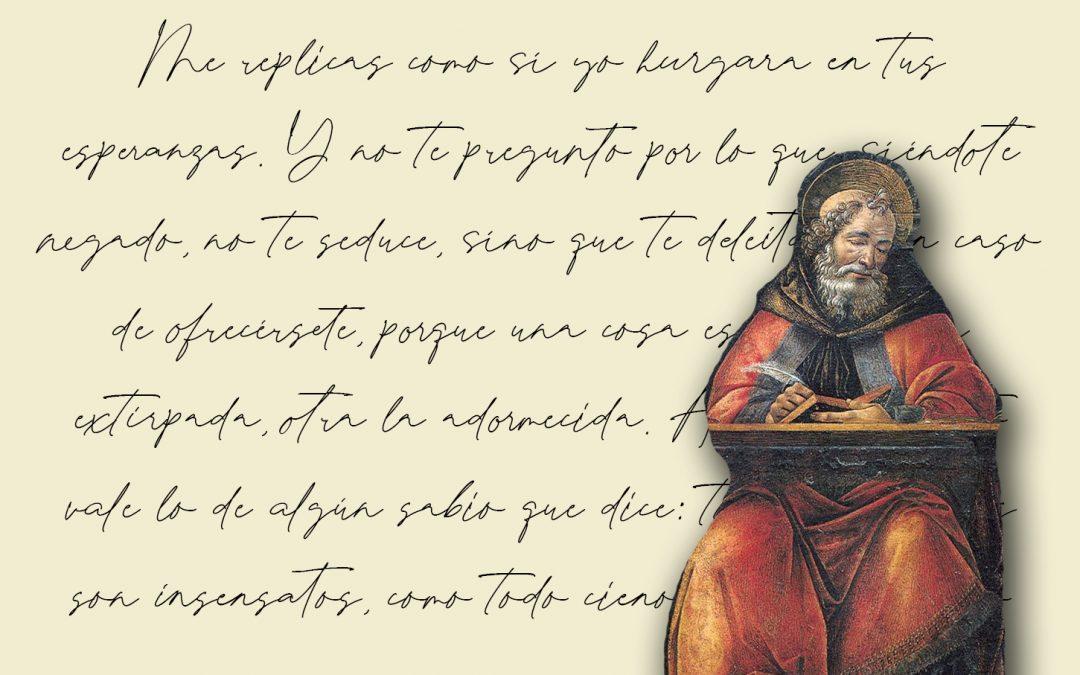 Me replicas como si yo hurgara en tus
esperanzas. Y no te pregunto por lo que, siéndote
negado, no te seduce, sino que te deleita caso
de ofrecérsete, porque una cosa es
extirpada, otra la adormecida. A
vale lo de algún sabio que dice:
son insensatos, como todo cieno